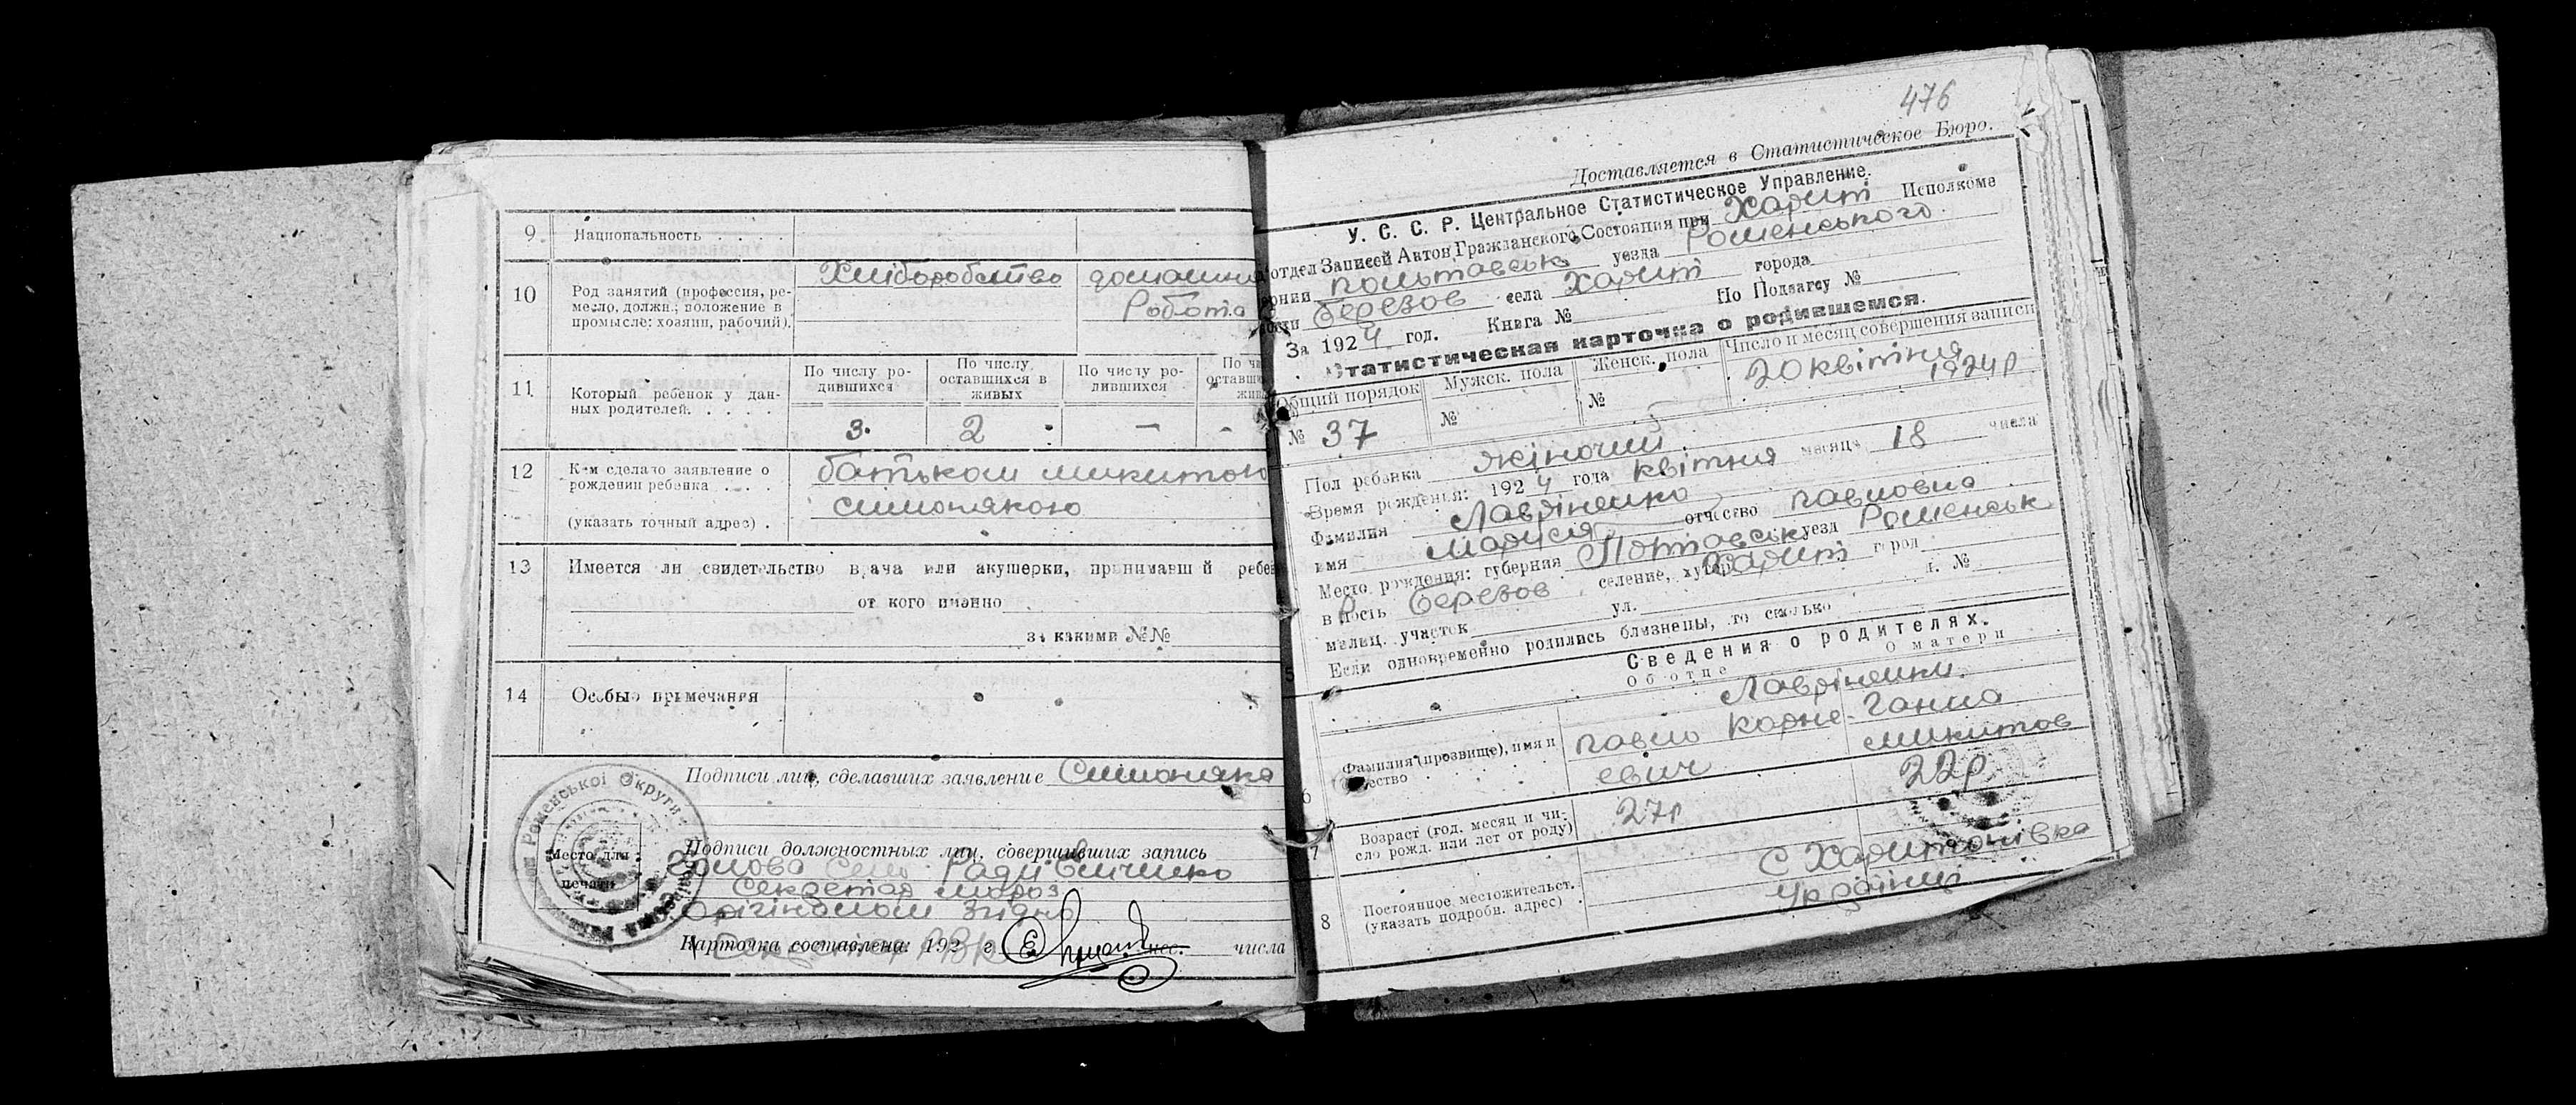 9 Национальность . . . .
10 Род занятий (профессия, ре-
месло, должн., положение в
промысле: хозяин, рабочий).
Хліборобство домашня
Робота
11 Который ребенок у дан-
ных родителей. . . . .
По числу ро-
дившихся
По числу
оставшихся в
живых
По числу ро-
дившихся
3. 2 - -
12 Кем сделано заявление о
рождении ребенка . . . .
(указать точный адрес) .
батьком микитою
симонякою
13 Имеется ли свидетельство врача или акушерки, принимавшей
от кого именно
за какими №№
14 Особые примечания
Подписи лиц, сделавших заявление Симоняка
Роменської Округи
Место для
печати
Подписи должностных лиц, совершивших запись
Голова Сель Ради
Секретар Мороз
Оригіналом Згідно
Карточка составлена: 192 г мес. числа
476
Доставляется в Статистическое Бюро.
У. С. С. Р. Центральное Статистическое Управление.
отдел Записей Актов Гражданского Состояния при Харит Исполкоме
польтавськ уезда Роменського
Березов села Харит города
За 1924 год. Книга № По Подзагсу №
Статистическая карточка о родившемся.
Общий порядок Мужск. пола Женск. пола Число и месяц совершения записи
№ 37 № № 20 квітня
1924р
Пол ребенка жіночий
Время рождения: 1924 года квітня месяца 18 числа
Фамилия Лавріненко
имя Маруся отчество павловна
Место рождения: губерния Полтавськ уезд Роменськ
в Березов селение, хутор Харит город
милиц. участок ул. д. №
Если одновременно родились близнецы, то сколько
Сведения о родителях.
Об отце О матери
Фамилия (прозвище), имя и
отчество
Лавріненки
павло Корне- Ганна
евич микитов
7 Возраст (год, месяц и чи-
сло рожд. или лет от роду)
27р 22р
8 Постоянное местожительст.
(указать подробн. адрес)
С Харитонівка
Українці